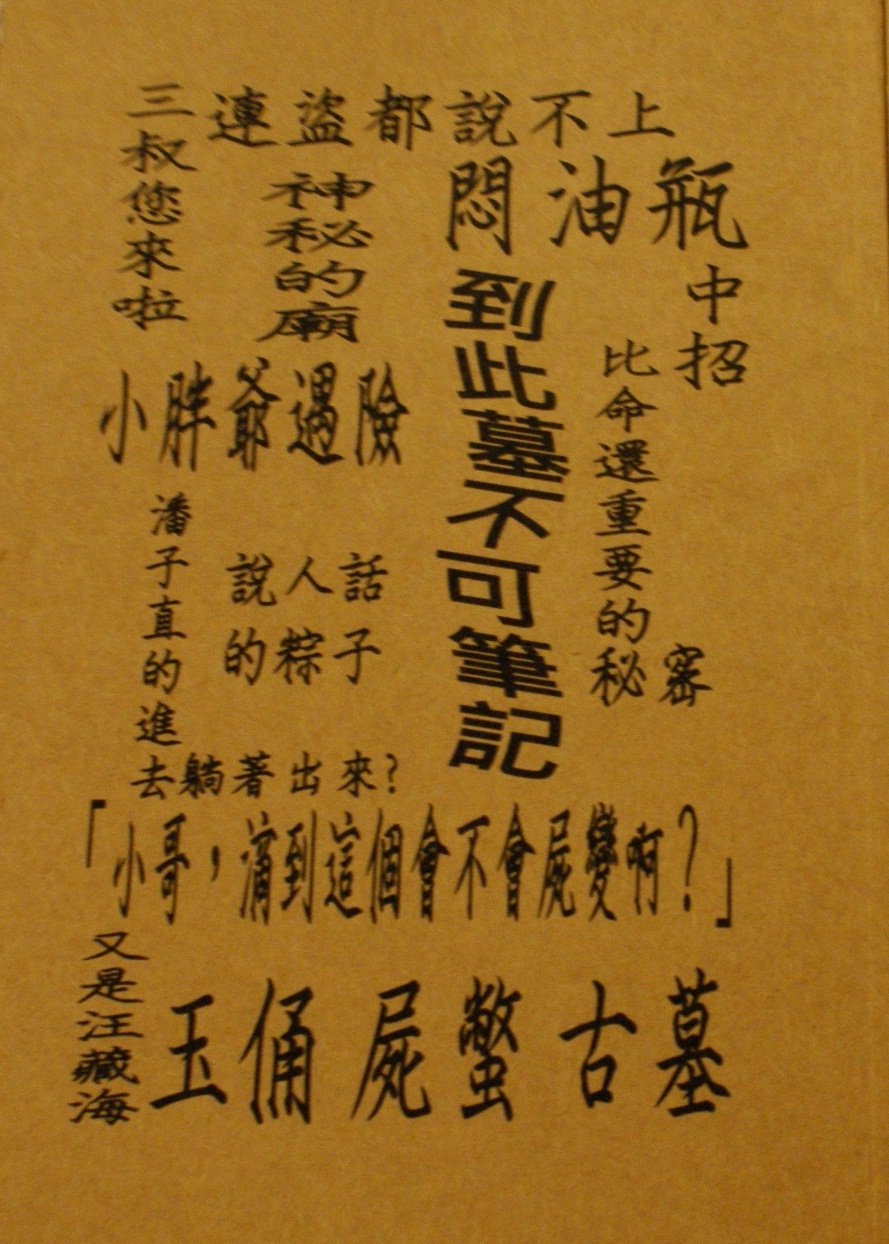 三叔您來啦
連盜都說不上
神秘的廟
悶油瓶中招
到此墓不可筆記
比命還重要的秘密
小胖爺遇險
潘子直的進去躺著出來?
說人話
的粽子
「小哥，滴到這個會不會屍變啊?」
又是汪藏海
玉俑屍蟞古墓